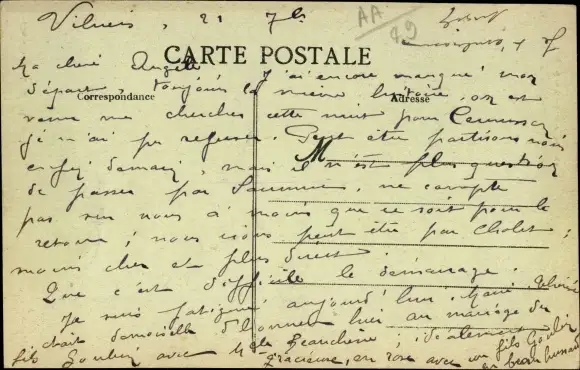 Vihiers, 21 7bre
AA
49
CARTE POSTALE
Ma chère Angèle
J'ai encore manqué mon
départ, toujours la même histoire, on est
Correspondance
Adresse
venu me chercher cette nuit pour
je n'ai pu refuser. Peut être partirons nous
M
enfin demain, mais il n'est plus question
de passer par Saumur, ne compte
pas sur nous à moins que ce soit pour le
retour ; nous irons peut être par Cholet ;
moins cher et plus direct.
Que c'est difficile le démarrage.
Je suis fatiguée aujourd'hui. Marie
était demoiselle d'honneur hier au mariage du
fils avec Mlle ; idéalement
gracieuse, en rose avec un fils
en beau hussard